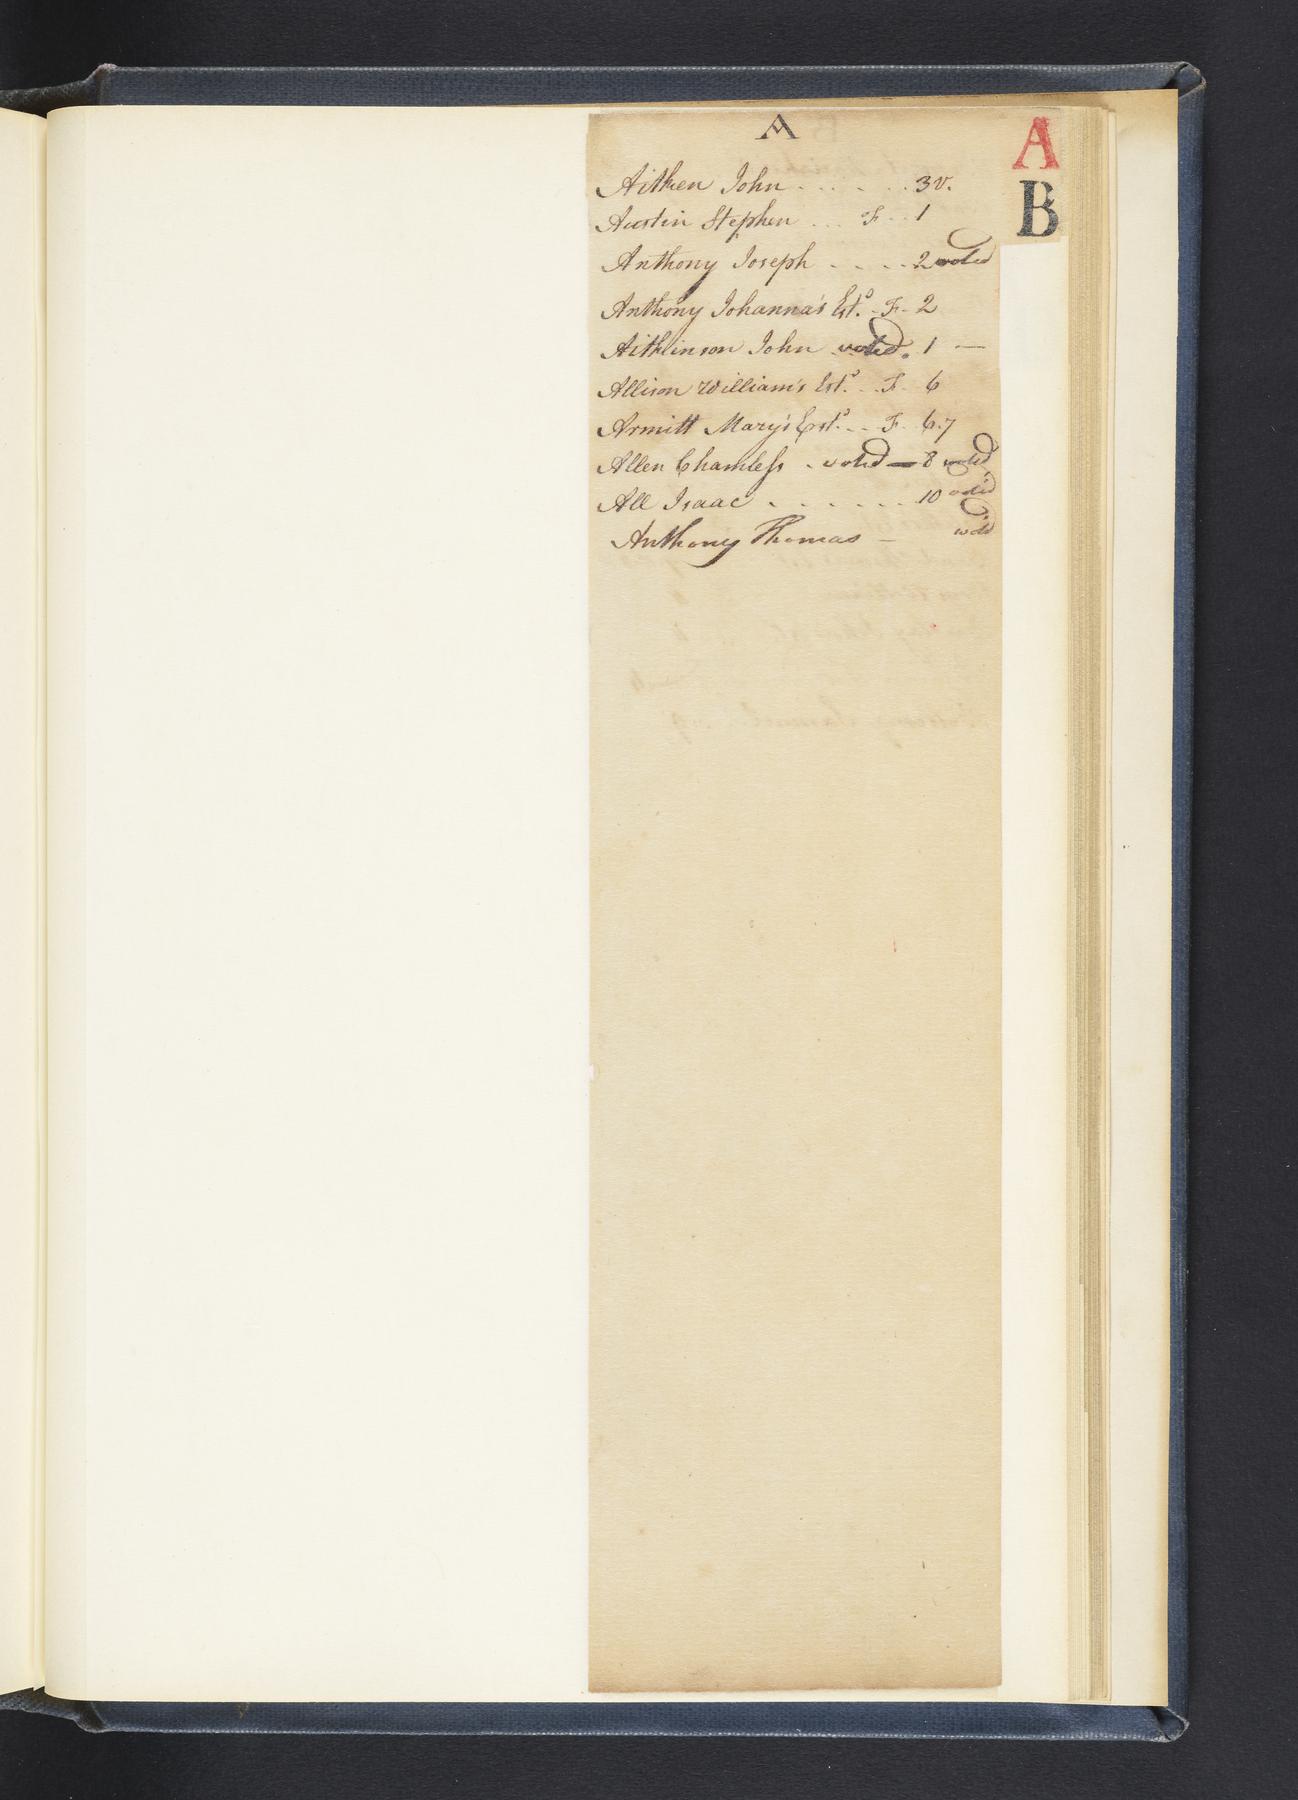 A
A
B
Aitken John . . . . . . 3 v.
Austin Stephen . . . F . . 1
Anthony Joseph . . . . 2 voted
Anthony Johanna's Est.ᵉ . F . 2
Aitkinson John voted . 1 —
Allison William's Est.ᵉ . . F . 6
Armitt Mary's Est.ᵉ . . . F . . 6.7
Allen Chamless . voted — 8 voted
All Isaac . . . . . . . 10 voted
Anthony Thomas — voted